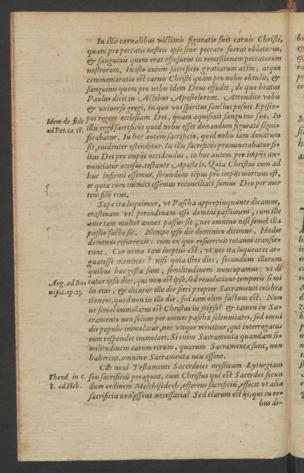 In illis carnalibus victimis figuratio fuit carnis Christi,
quam pro peccatis nostris ipse sine peccato fuerat oblaturus,
& sanguinis quem erat effusurus in remissionem peccatorum
nostrorum. In isto autem sacrificio gratiarum actio, atque
commemoratio est carnis Christi quam pro nobis obtulit, &
sanguinis quem pro nobis idem Deus effudit, de quo beatus
Paulus dicit in Actibus Apostolorum. Attendite vobis
& universo gregi, in quo vos spiritus sanctus posuit Episco-
Idem de Fide
pos regere ecclesiam Dei, quam aquisivit sanguine suo. In
ad Pet. ca. 18.
illis ergo sacrificiis quid nobis esset donandum figurate signi-
ficabatur. In hoc autem sacrificio, quid nobis iam donatum
sit, evidenter ostenditur. In illis sacrificiis pronunciabatur fi-
lius Dei pro impiis occidendus, in hoc autem pro impiis an-
nunciatur occisus, testante Apostolo, Quia Christus cum ad
huc infirmi essemus, secundum tempus pro impiis mortuus est,
et quia cum inimici essemus reconciliati sumus Deo per mor
tem filii eius.
Sæpe ita loquimur, ut Pascha appropinquante dicamus,
crastinam vel perendinam esse domini passionem, cum ille
ante tam multos annos passus sit, nec omnino nisi semel illa
passio facta sit. Nempe ipso die dominico dicimus, Hodie
dominus resurrexit: cum ex quo resurrexit tot anni transie-
runt. Cur nemo tam ineptus est, ut nos ita loquentes ar-
quibus hæc gesta sunt, similitudinem nuncupamus: ut di
Aug. ad Bo-
catur ipse dies, qui non est ipse, sed revolutione temporis simi
nifac. ep. 23.
lis eius, & dicatur illo die fieri propter Sacramenti celebra
tionem, quod non in illo die, sed iam olim factum est. Non
ne semel immolatus est Christus in seipso? & tamen in Sa-
cramento non solum per omnes paschæ solennitates, sed omni
die populis immolatur, nec utique mentitur, qui interrogatus
eum respondet immolari. Si enim Sacramenta quandam si-
militudinem earum rerum, quarum Sacramenta sunt, non
haberent, omnino Sacramenta non essent.
Cur novi Testamenti Sacerdotes mysticam Lyturgiam
Theod. in c.
seu sacrificium peragunt, cum Christus qui est Sacerdos secun
8. ad Heb.
dum ordinem Melchisedech, offerens sacrificium, effecit ut alia
sacrificia non essent necessaria? Sed clarum est iis, qui in re-
bus di-